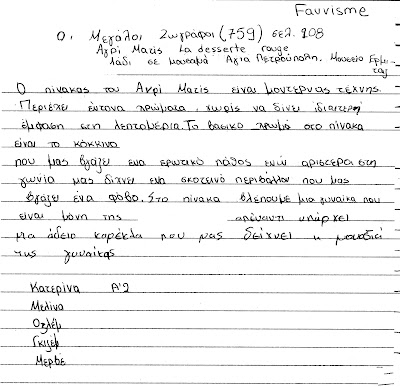 Fauvisme
Οι Μεγάλοι Ζωγράφοι (759) σελ. 108
Ανρί Ματίς La desserte rouge
λάδι σε μουσαμά Αγία Πετρούπολη. Μουσείο Ερμι-
τάζ
Ο πίνακας του Ανρί Ματίς είναι μοντέρνας τέχνης.
Περιέχει έντονα χρώματα, χωρίς να δίνει ιδιαίτερη
έμφαση στη λεπτομέρια. Το βασικό χρώμα στο πίνακα
είναι το κόκκινο
που μας βγάζει ένα ερωτικό πάθος ενώ αριστερά στη
γωνία μας δίχνει ένα σκοτεινό περιβάλλον που μας
βγάζει ένα φόβο. Στο πίνακα βλέπουμε μια γυναίκα που
είναι μόνη της απέναντι υπάρχει
μια άδεια καρέκλα που μας δείχνει η μοναξιά
της γυναίκας
Κατερίνα Α'2
Μελίνα
Οζλέμ
Γκιζέμ
Μερβε